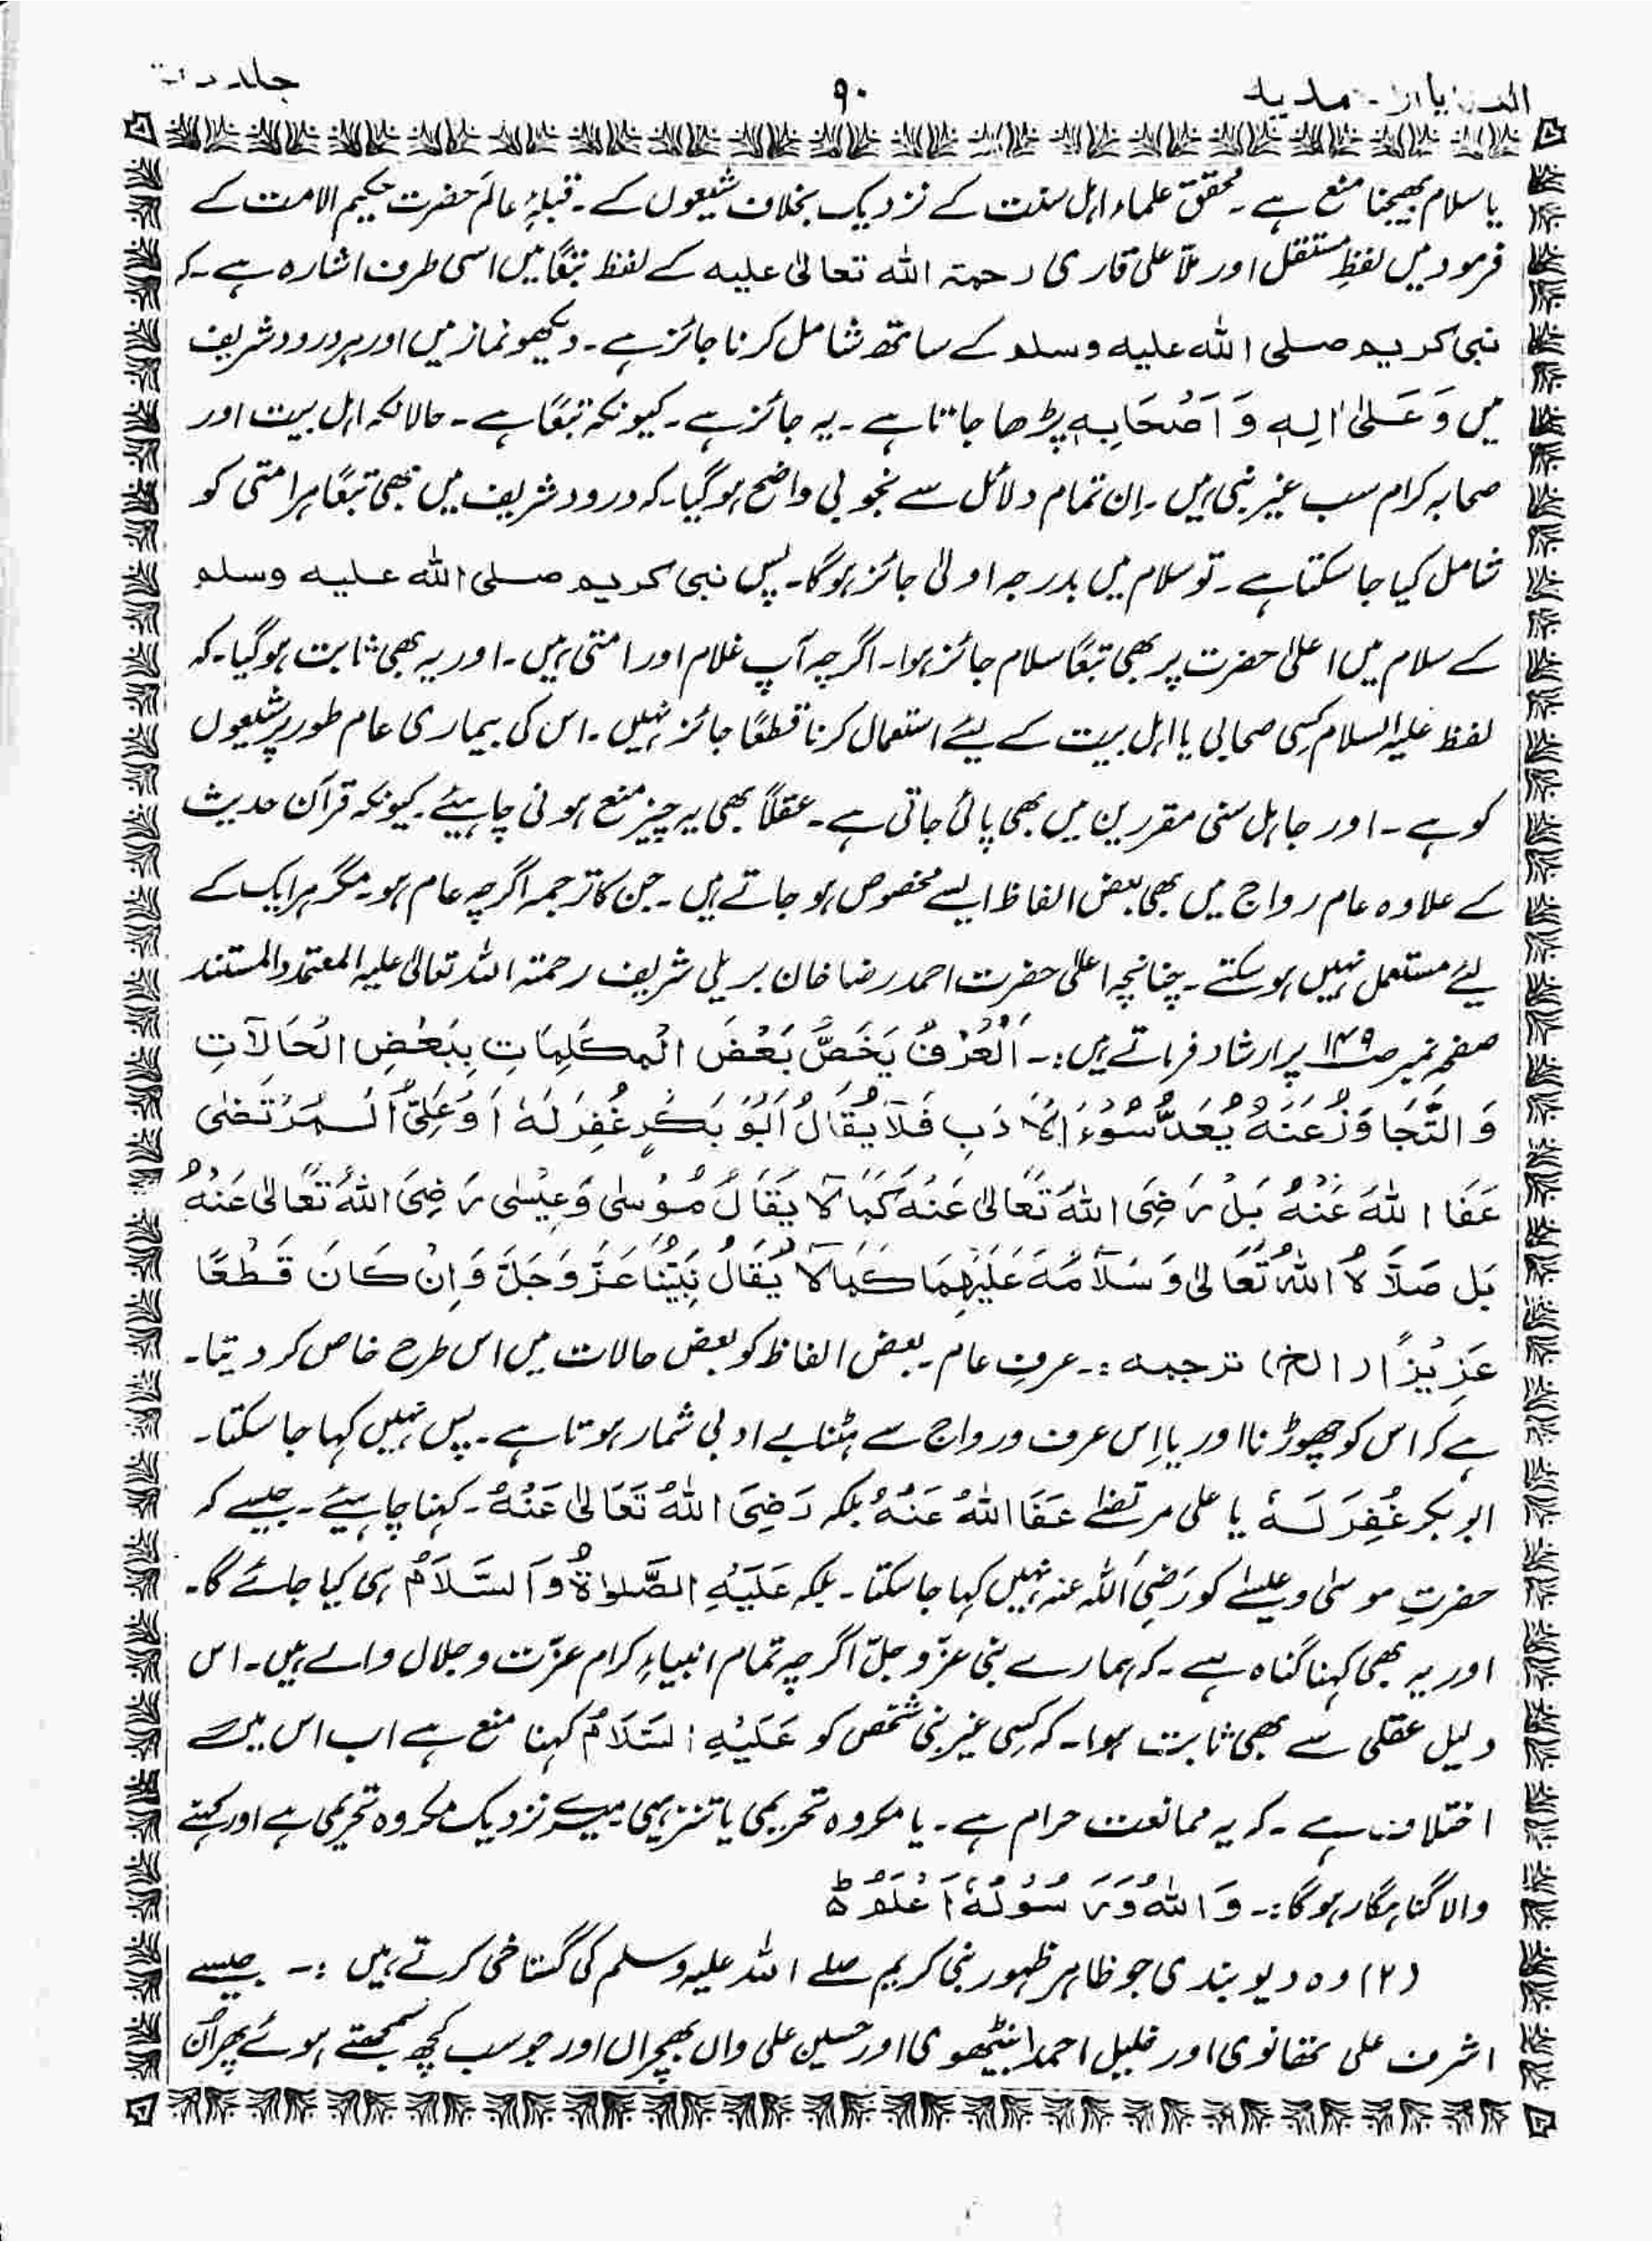 ۹۰
یا سلام بھیجنا منع ہے۔ محقق علماء اہل سنت کے نزدیک بخلاف شیعوں کے۔ قبلۂ عالم حضرت حکیم الامت کے
فرمود میں لفظِ مستقل اور ملّا علی قاری رحمۃ اللہ تعالیٰ علیہ کے لفظ تبعًا میں اسی طرف اشارہ ہے۔ کہ
نبی کریم صلی اللہ علیہ وسلم کے ساتھ شامل کرنا جائز ہے۔ دیکھو نماز میں اور ہر درود شریف
میں وَ عَلیٰ اٰلِہٖ وَ اَصْحَابِہٖ پڑھا جاتا ہے۔ یہ جائز ہے۔ کیونکہ تبعًا ہے۔ حالانکہ اہل بیت اور
صحابہ کرام سب غیر نبی ہیں۔ اِن تمام دلائل سے بخوبی واضح ہو گیا۔ کہ درود شریف میں بھی تبعًا ہر امتی کو
شامل کیا جا سکتا ہے۔ تو سلام میں بدرجہ اولیٰ جائز ہوگا۔ پس نبی کریم صلی اللہ علیہ وسلم
کے سلام میں اعلیٰ حضرت پر بھی تبعًا سلام جائز ہوا۔ اگرچہ آپ غلام اور امتی ہیں۔ اور یہ بھی ثابت ہو گیا۔ کہ
لفظ علیہ السلام کسی صحابی یا اہل بیت کے لیئے استعمال کرنا قطعًا جائز نہیں۔ اس کی بیماری عام طور پر شیعوں
کو ہے۔ اور جاہل سنی مقررین میں بھی پائی جاتی ہے۔ عقلًا بھی یہ چیز منع ہونی چاہیئے۔ کیونکہ قرآن حدیث
کے علاوہ عام رواج میں بھی بعض الفاظ ایسے مخصوص ہو جاتے ہیں۔ جن کا ترجمہ اگرچہ عام ہو۔ مگر ہر ایک کے
لیئے مستعمل نہیں ہو سکتے۔ چنانچہ اعلیٰ حضرت احمد رضا خان بریلی شریف رحمتہ اللہ تعالیٰ علیہ المعتمد والمستند
صفحہ نمبر ص۱۴۹ پر ارشاد فرماتے ہیں:۔ اَلْعُرْفُ یَخَصُّ بَعْضَ الْمکَلِمَاتِ بِبَعْضِ الْحَالَاتِ
وَ التَّجَاوَزُ عَنْهُ یُعَدُّ سُوْءَ الْاَدَبِ فَلَا یُقَالُ اَبُوْ بَکْرٍ غُفِرَ لَهٗ اَوْ عَلِیُّ اَلْمُرْتَضٰی
عَفَا اللّٰهُ عَنْهُ بَلْ رَضِیَ اللّٰهُ تَعَالیٰ عَنْهُ کَمَا لَا یُقَالُ مُوْسٰی وَعِیْسٰی رَضِیَ اللّٰهُ تَعَالیٰ عَنْهُ
بَل صَلَاةُ اللّٰهِ تَعَالیٰ وَ سَلَامُهٗ عَلَیْهِمَا کَمَا لَا یُقَالُ نَبِیُّنَا عَزَّ وَجَلَّ وَ اِنْ کَانَ قَطْعًا
عَزِیْزًا (الخ) ترجمہ:۔ عرفِ عام۔ بعض الفاظ کو بعض حالات میں اس طرح خاص کر دیتا۔
ہے کہ اس کو چھوڑنا اور یا اِس عرف و رواج سے ہٹنا بے ادبی شمار ہوتا ہے۔ پس نہیں کہا جا سکتا۔
ابو بکر غُفِرَ لَهٗ یا علی مرتضےٰ عَفَا اللّٰهُ عَنْهُ بلکہ رَضِیَ اللّٰهُ تَعَالیٰ عَنْهُ۔ کہنا چاہیئے۔ جیسے کہ
حضرتِ موسٰی و عیسٰے کو رَضِیَ اللّٰہ عنہ نہیں کہا جا سکتا۔ بلکہ عَلَیْهِ الصَّلوٰةُ وَالسَّلَامُ ہی کیا جائے گا۔
اور یہ بھی کہنا گناہ ہے۔ کہ ہمارے نبی عزّ و جلّ اگرچہ تمام انبیاءِ کرام عزّت و جلال والے ہیں۔ اس
دلیل عقلی سے بھی ثابت ہوا۔ کہ کسی غیر نبی شخص کو عَلَیْهِ السَّلَامُ کہنا منع ہے اب اس میں
اختلاف ہے۔ کہ یہ ممانعت حرام ہے۔ یا مکروہ تحریمی یا تنزیہی۔ میرے نزدیک مکروہ تحریمی ہے اور کہنے
والا گناہگار ہوگا:۔ وَاللّٰهُ وَرَسُوْلُهٗ اَعْلَمُ ط
(۲) وہ دیوبندی جو ظاہر ظہور نبی کریم صلے اللہ علیہ وسلم کی گستاخی کرتے ہیں :۔ جیسے
اشرف علی تھانوی اور خلیل احمد انبیٹھوی اور حسین علی واں بھچراں اور جو سب کچھ سمجھتے ہوئے پھر اُن